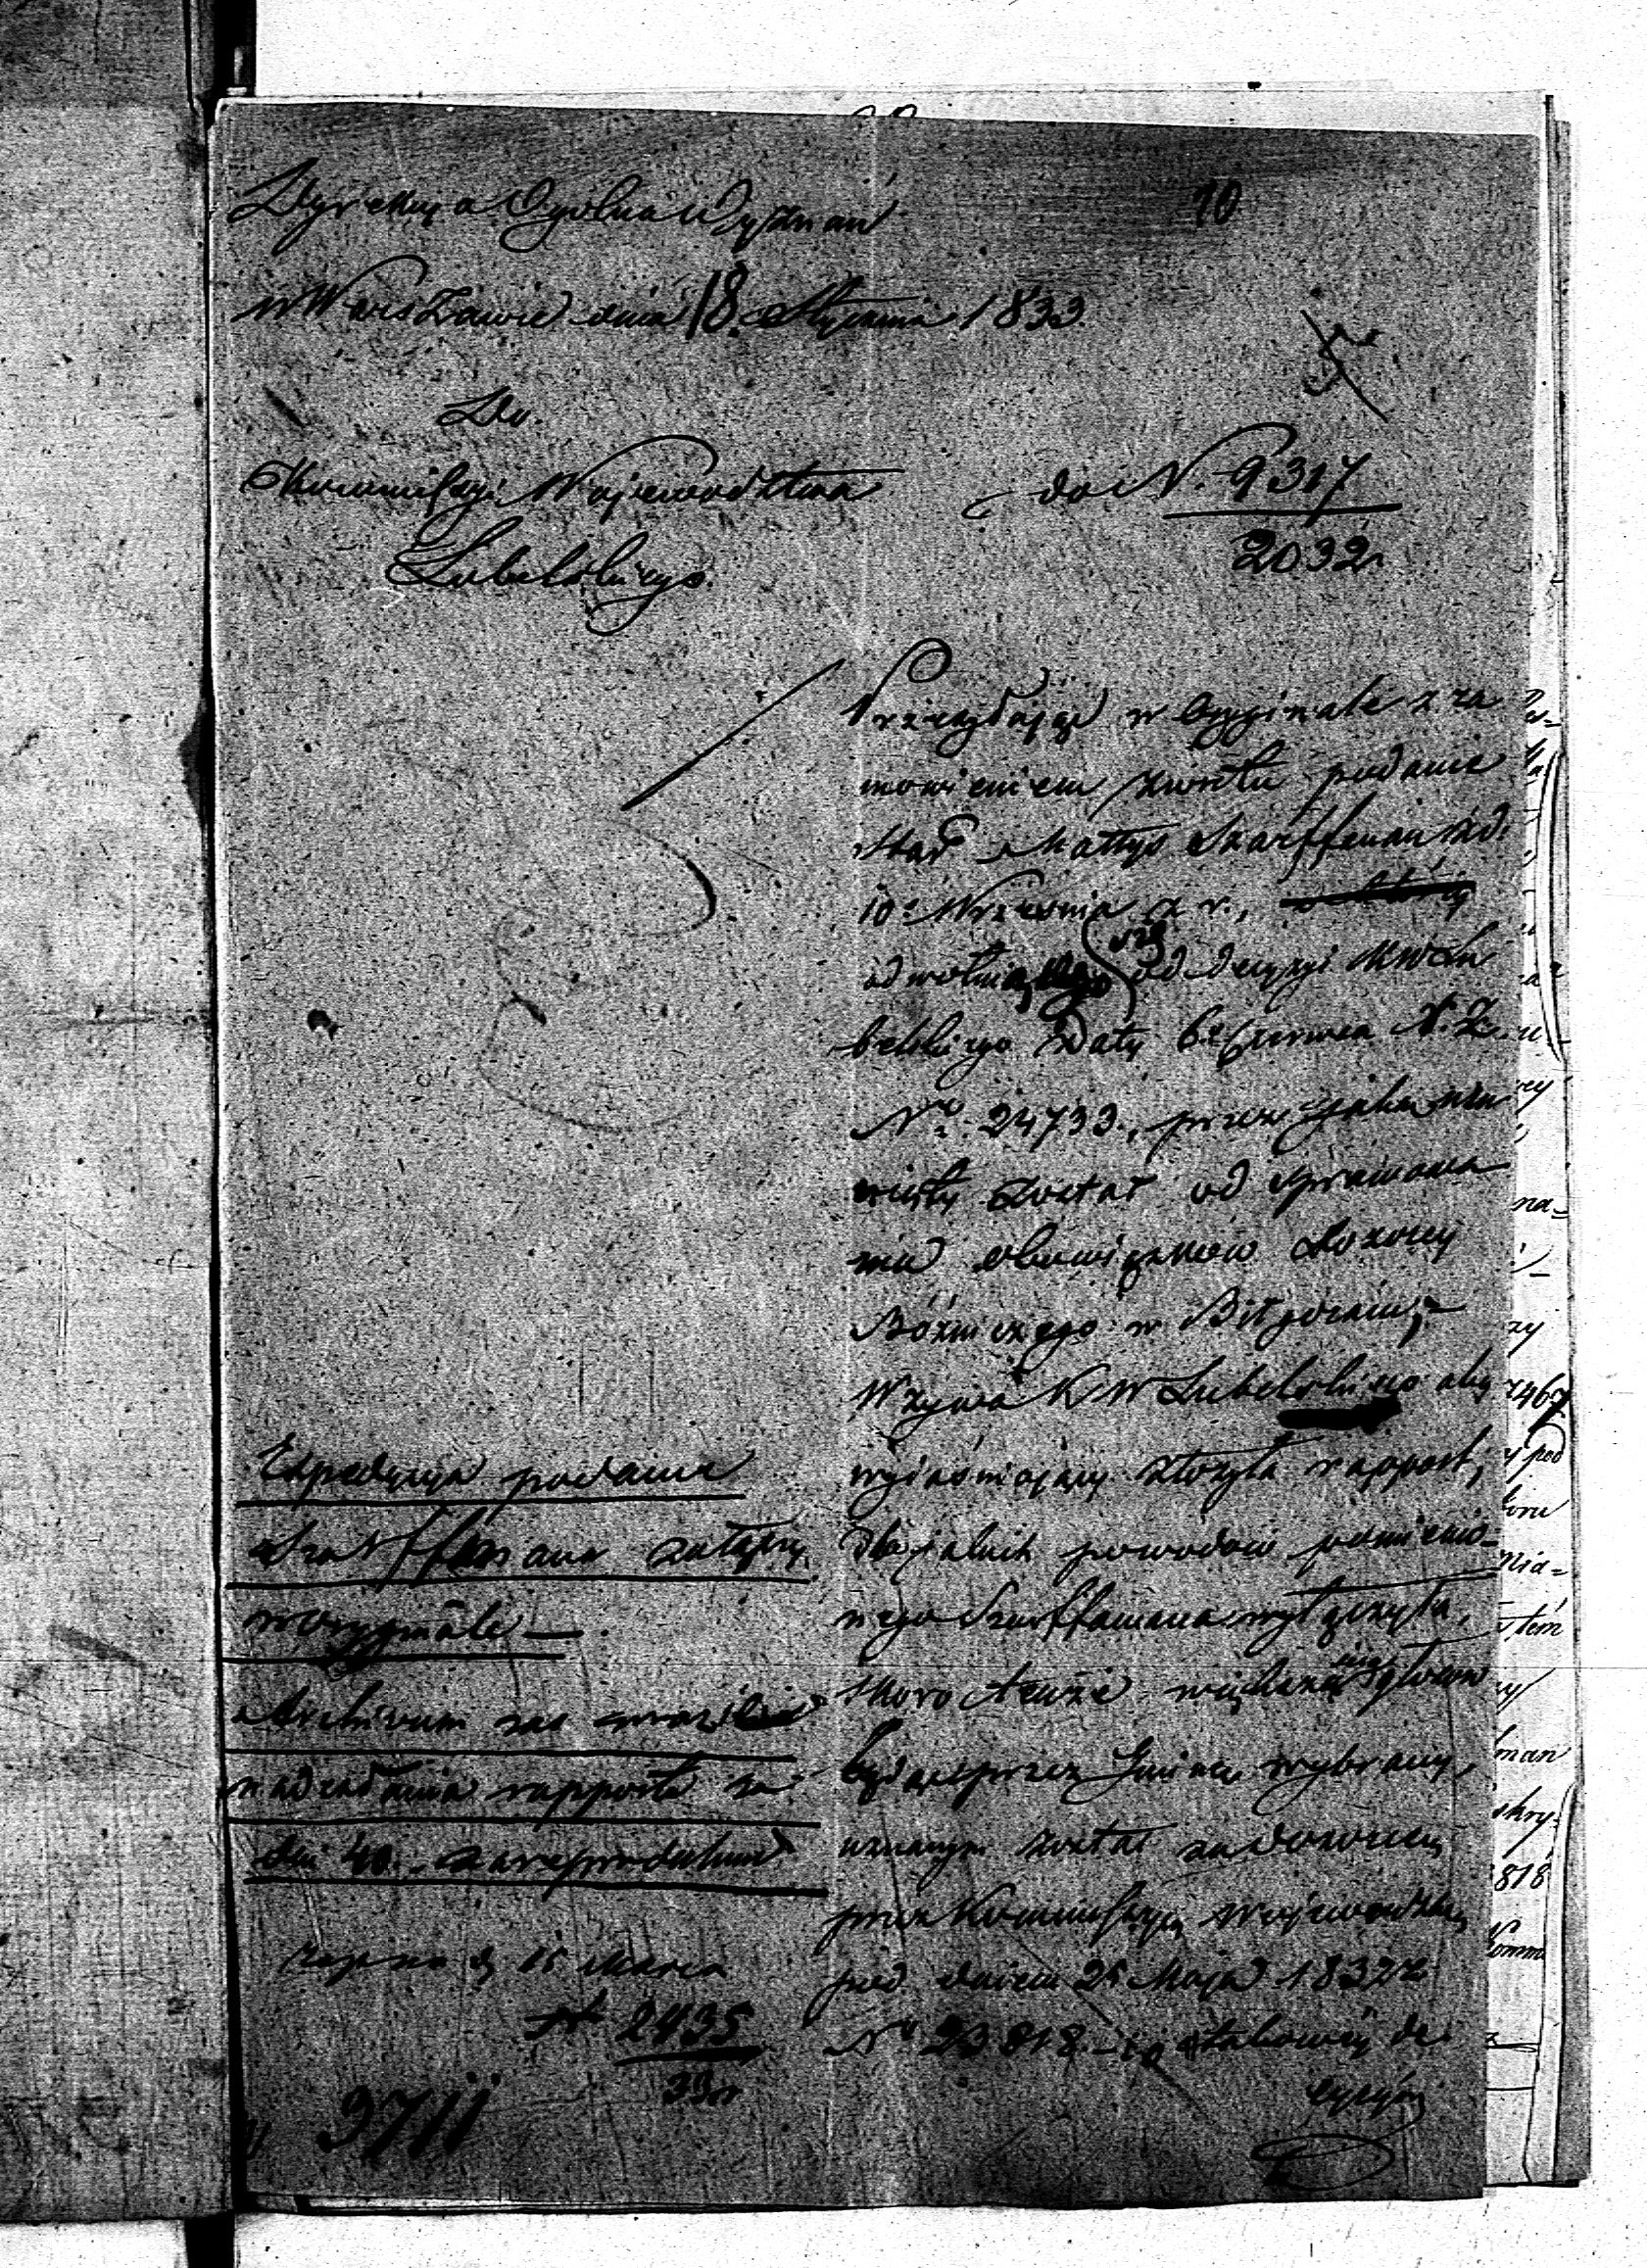 Dyrekcya Ogólna Wyznań
10
w Warszawie dnia 18 Stycznia 1833.
Do
Kommissyi Województwa
Lubelskiego.
do N. 9317
2032
Przesyłając w Oryginale z za
mówieniem zwrotu podanie
Star. Mattys Szarffman z d.
10. Września z. r.,
się od decyzyi KW Lu
belskiego Daty 6 Czerwca
No. 24733., przez jaką usu
nięty został od sprawowa
nia obowiązków Dozorcy
Bóżniczego w Biłgoraiu,
Wzywa KW Lubelskiego aby
wyiaśniaiący złożyła rapport,
dla jakich powodów pomienio-
nego Szarffmana wyłączyła,
skoro tenże większością głosów
będąc przez Gminę wybrany,
uznanym został za dozorcę
przez Kommissyą Wojewódzką
pod dniem 25 Maja 1832 r.
No 23818. — i o takowéj de-
cyzyi
Expedycya podanie
Szarffmana załączy
w oryginale —
Archivum w razie nie
nadesłania rapportu za
dni 40. zareprodukuje
15 Marca
N 2435
33r
3711